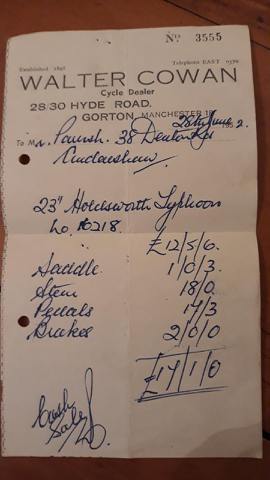 Nº 3555
Established 1896 Telephone EAST 0576
WALTER COWAN
Cycle Dealer
28/30 HYDE ROAD,
GORTON, MANCHESTER 18
28th June 1952.
To Mr. Parrish. 38 Denton Rd
Audenshaw
23" Holdsworth Typhoon
No. 16218. £12/5/6.
Saddle. 1/0/3.
Stem 18/0
Pedals 17/3
Brakes 2/0/0
£17/1/0
Cash
Sale